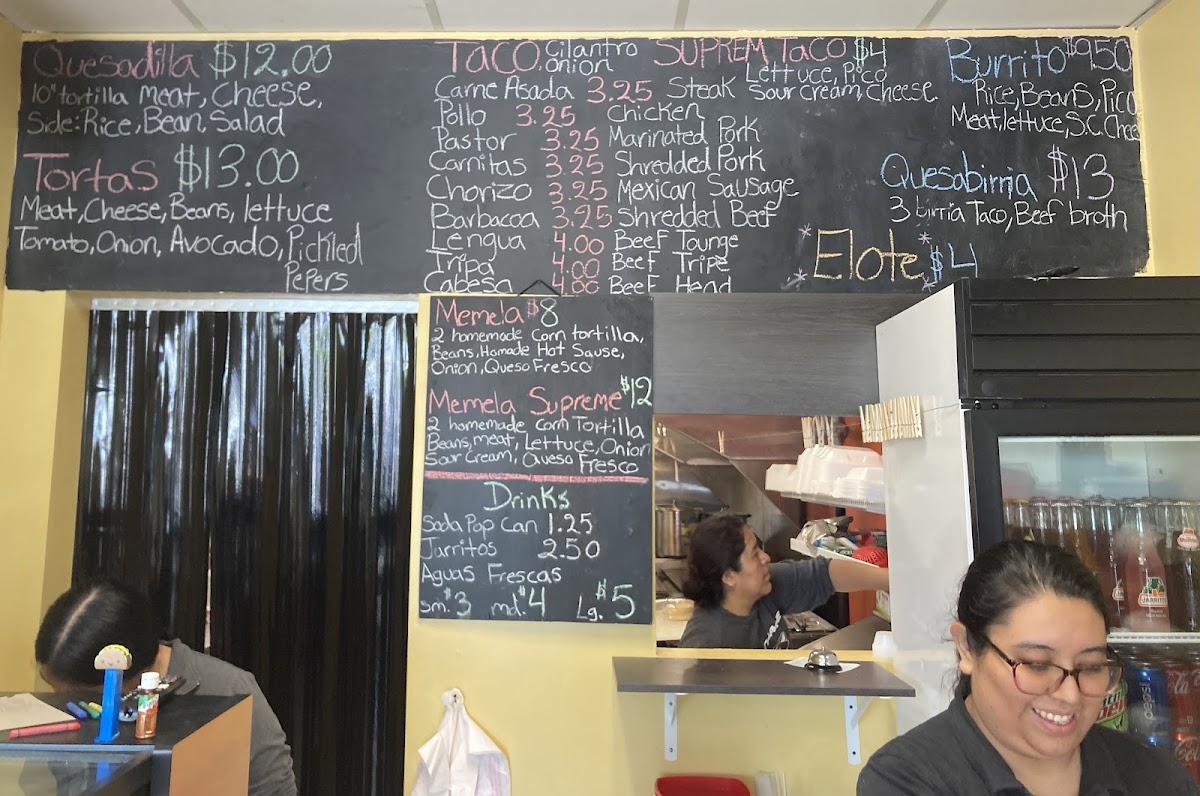 Quesadilla $12.00
10" tortilla meat, Cheese,
Side: Rice, Bean, Salad
Tortas $13.00
Meat, Cheese, Beans, lettuce
Tomato, Onion, Avocado, Pickled
Pepers
TACO Cilantro
onion
Carne Asada 3.25 Steak
Pollo 3.25 Chicken
Pastor 3.25 Marinated Pork
Carnitas 3.25 Shredded Pork
Chorizo 3.25 Mexican Sausage
Barbacoa 3.25 Shredded Beef
Lengua 4.00 Beef Tounge
Tripa 4.00 Beef Tripe
Cabesa 4.00 Beef Head
SUPREM TACO $4
Lettuce, Pico
Sour Cream, Cheese
Burrito $9.50
Rice, Beans, Pico
Meat, lettuce, S.C. Chee
Quesabirria $13
3 birria Taco, Beef broth
Elote $4
Memela $8
2 homemade Corn tortilla,
Beans, Homade Hot Sause,
Onion, Queso Fresco
Memela Supreme $12
2 homemade Corn Tortilla
Beans, meat, Lettuce, Onion
Sour Cream, Queso Fresco
Drinks
Soda Pop Can 1.25
Jarritos 2.50
Aguas Frescas
sm. $3 md. $4 Lg. $5
JARRITOS
pepsi